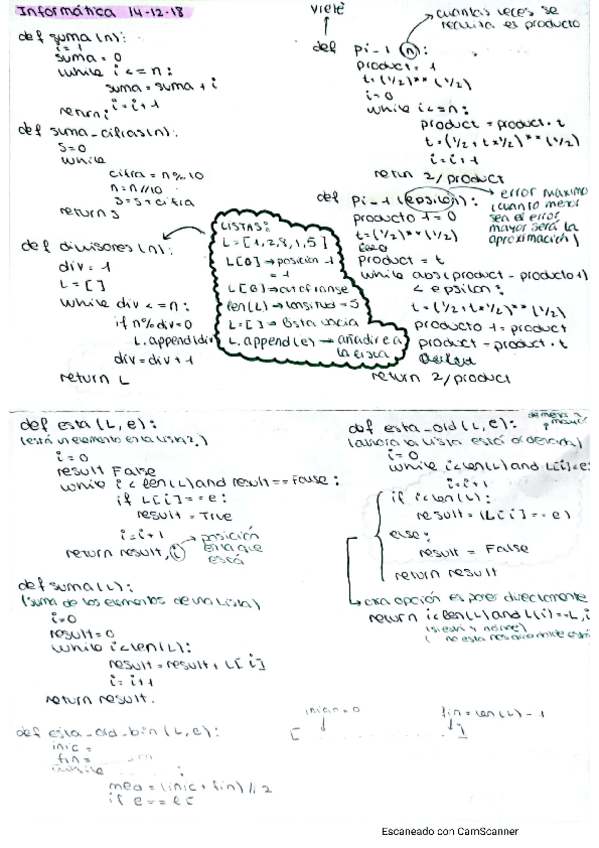 Informática 14-12-18
def suma(n):
i=1
suma = 0
while i<=n:
suma = suma + i
i=i+1
return;
def suma_cifras(n):
s=0
while
cifra = n%10
n=n//10
s=s+cifra
return s
def divisores(n):
div=1
L=[]
while div <=n:
if n%div=0
L.append(div
div=div+1
return L
LISTAS:
L=[1,2,8,1,5]
L[0]→posición 1
=1
L[8]→out of range
len(L)→longitud=5
L=[]→lista vacía
L.append(e)→añadir e a
la lista
viete
cuantas veces se
realiza el producto
def pi-1(n):
product=1
t=(1/2)**(1/2)
i=0
while i<=n:
product=product·t
t=(1/2+t*1/2)**(1/2)
i=i+1
retun 2/product
def pi-1(epsilon):
error máximo
(cuanto menor
sea el error
mayor será la
aproximación)
producto1=0
t=(1/2)**(1/2)
product=t
while abs(product-producto1)
<epsilon:
t=(1/2+t*1/2)**(1/2)
producto1=product
product-product·t
return 2/product
def esta(L,e):
(está un elemento en la lista?)
i=0
result False
while i<len(L) and result==False:
if L[i]==e:
result=True
i=i+1
return result, i
posición
en la que
está
def suma(L):
(suma de los elementos de una lista)
i=0
result=0
while i<len(L):
result=result+L[i]
i=i+1
return result.
def esta_ord(L,e):
de menor a
mayor
(ahora la lista está ordenada)
i=0
while i<len(L) and L[i]<e:
i=i+1
if i<len(L):
result=(L[i]==e)
else:
result = False
return result
otra opción es poner directamente
return i<len(L) and L(i)==L,i
def esta_ord_bin(L,e):
inic=
fin=
while :
med=(inic+fin)//2
if e==
inicio=0
fin=len(L)-1
[ ]
Escaneado con CamScanner